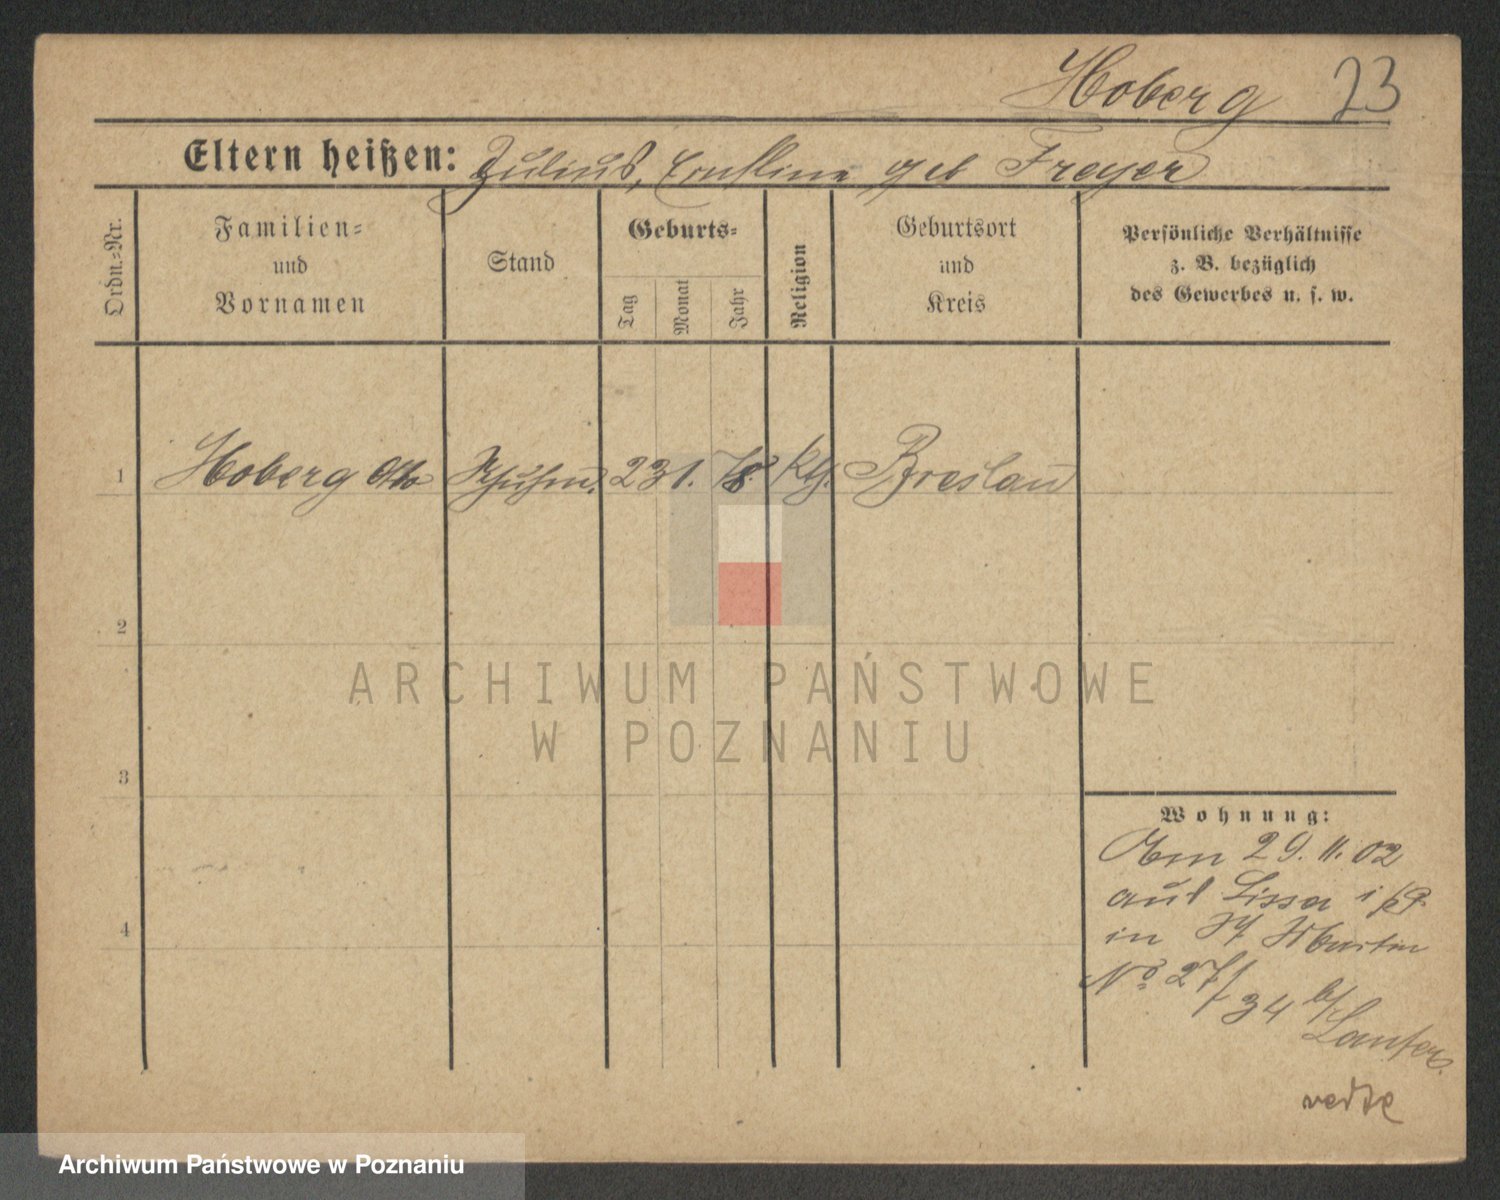 Hoberg 23
Eltern heißen: Julius, Ernstine geb Freyer
Ordn.-Nr.
Familien-
und
Vornamen
Stand
Geburts-
Tag
Monat
Jahr
Religion
Geburtsort
und
Kreis
Persönliche Verhältnisse
z. B. bezüglich
des Gewerbes u. s. w.
1 Hoberg Otto Schuhm. 23 1. 78. kth. Breslau
2
3
4
Wohnung:
Am 29. 11. 02
aus Lissa i/P.
in St Martin
No 27/34 b/
ARCHIWUM PAŃSTWOWE
W POZNANIU
Archiwum Państwowe w Poznaniu